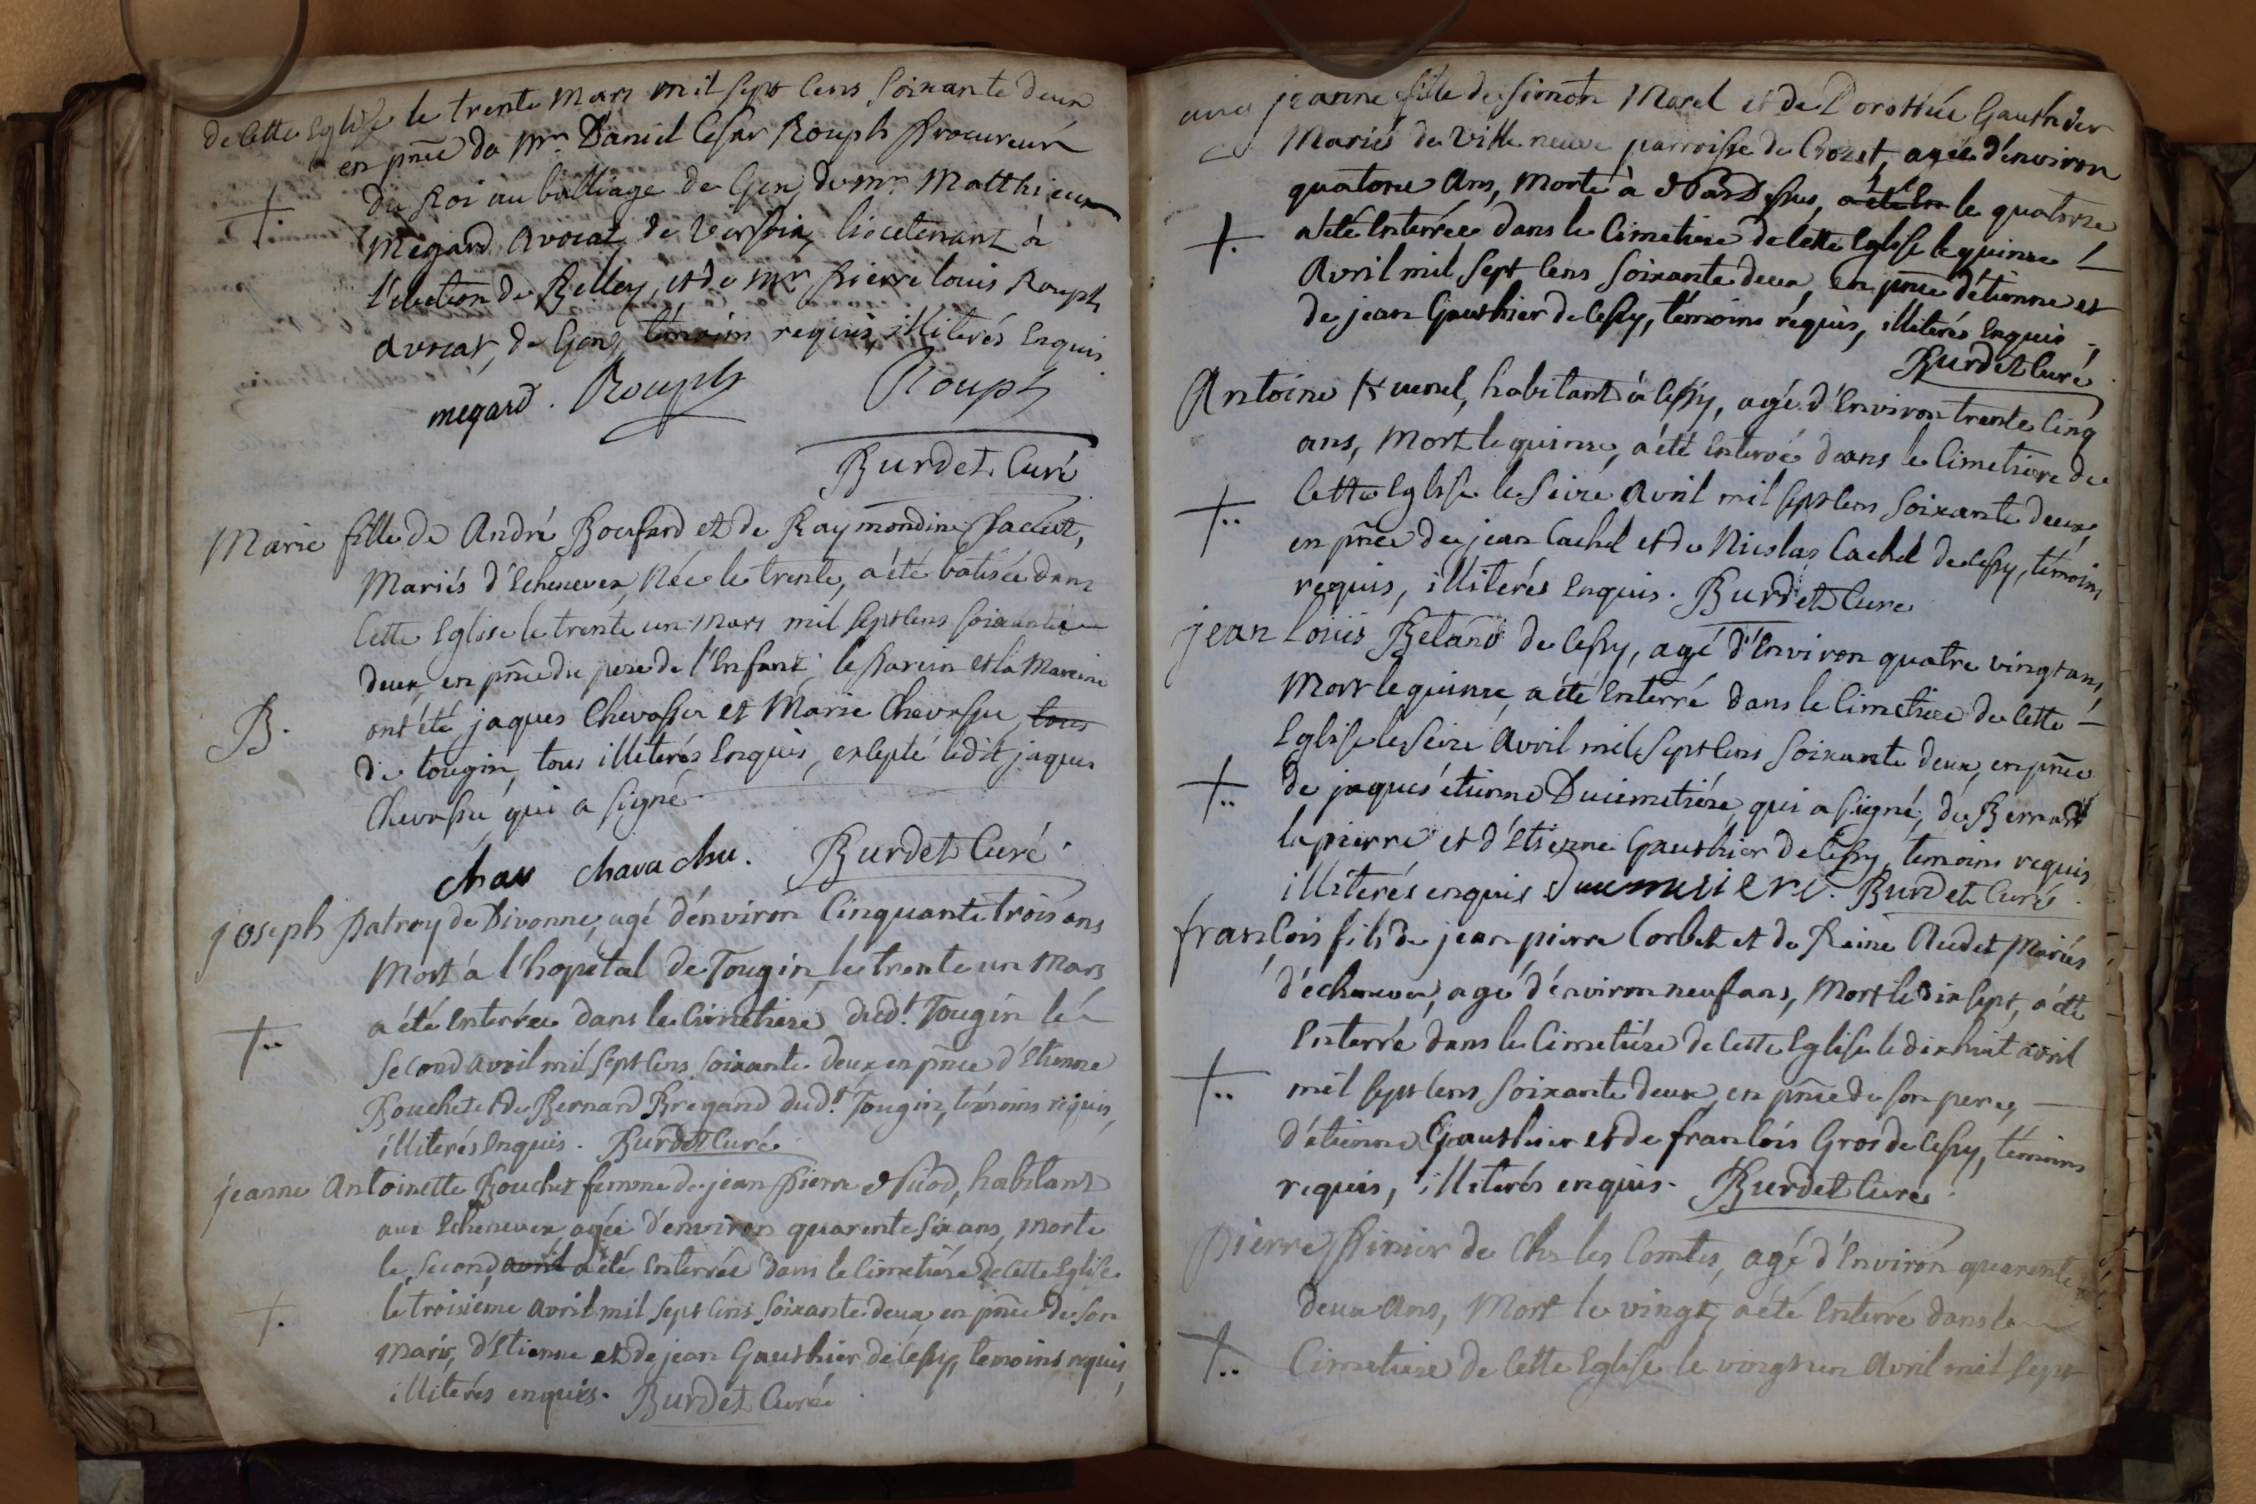 de Cette Eglise le trente Mars mil sept Cens Soixante deux
en pñce de Mr. Daniel Cesar Rouph Procureur
du Roi au bailliage de Gex, de mr. Matthieu
Megard Avocat, de Versoix, lieutenant à
l'élection de Belley, et de Mr. Pierre louis Rouph
avocat, de Gex, témoins requis, illiterés Enquis.
megard. Rouph Rouph
Burdet Curé
Marie fille de André Boufard et de Raymondine
Mariés d'Echenevex, Née le trente, a été batisée dans
Cette Eglise le trente un Mars mil sept Cens soixante
deux, en pñce du pere de l'Enfant; le Parein et la Mareine
ont été jaques Chevassu et Marie Chevassu, tous
de tougin, tous illiterés Enquis, excepté ledit jaques
Chevassu qui a signé
chav chavachu. Burdet Curé.
joseph Patroy de Divonne, agé d'environ Cinquante trois ans
Mort à l'hopital de Tougin, le trente un Mars
a été Enterrée dans le Cimetiere dud.t Tougin le
second avril mil sept Cens soixante deux, en pñce d'Etienne
Bouchet et de Bernard Bregand dud.t Tougin, témoins requis,
illiterés Enquis. Burdet Curé
jeanne Antoinette Bouchet femme de jean Pierre habitans
aux Echenevex, agée d'environ quarente six ans, Morte
le second avril a été Enterrée dans le Cimetiére de Cette Eglise
le troisiéme avril mil sept Cens soixante deux, en pñce de son
Mari, d'Etienne et de jean Gauthier de Cessy, temoins requis,
illiterés enquis. Burdet Curé
jeanne fille de Simon Marel et de Dorothée Gauthier
Mariés de Ville neuve parroisse de Crozet, agée d'environ
quatorze Ans, Morte à a été En le quatorze
a été Enterrée dans le Cimetiere de Cette Eglise le quinze
Avril mil sept Cens soixante deux, en pñce d'étienne et
de jean Gauthier de Cessy, témoins requis, illiterés Enquis.
Burdet Curé
Antoine habitant à Cessy, agé d'Environ trente Cinq
ans, Mort le quinze, a été Enterré dans le Cimetiere de
Cette Eglise le Seize Avril mil sept Cens soixante deux,
en pñce de jean Cachel et de Nicolas Cachel de Cessy, témoins
requis, illiterés Enquis. Burdet Curé
jean Louis Beland de Cessy, agé d'Environ quatre vingt ans,
Mort le quinze, a été Enterré dans le Cimetiere de Cette
Eglise le Seize Avril mil sept Cens soixante deux, en pñce
de jaques étienne Ducimetiére, qui a signé, de Bernard
lapierre et d'Etienne Gauthier de Cessy, témoins requis
illiterés enquis Burdet Curé.
françois fils de jean pierre Corbet et de Reine Audet Mariés
d'échenevex, agé d'environ neuf ans, Mort le dix sept, a été
Enterré dans le Cimetiére de Cette Eglise le dix huit avril
mil sept Cens soixante deux, en pñce de son pere,
d'étienne Gauthier et de françois Gros de Cessy, témoins
requis, illiterés enquis. Burdet Curé
Pierre de Chs les Comtes, agé d'Environ quarente
deux Ans, Mort le vingt, a été Enterré dans le
Cimetiere de Cette Eglise le vingt un Avril mil sept